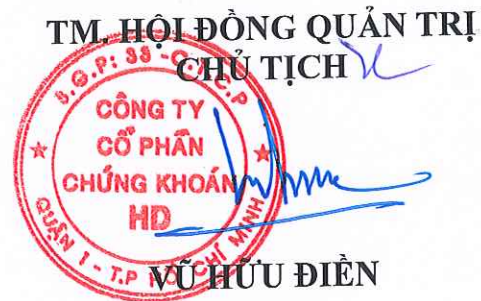 TM. HỘI ĐỒNG QUẢN TRỊ
CHỦ TỊCH
S.G.P: 38 - C.T.C.P
CÔNG TY
CỔ PHẦN
CHỨNG KHOÁN
HD
QUẬN 1 - T.P HỒ CHÍ MINH
VŨ HỮU ĐIỀN